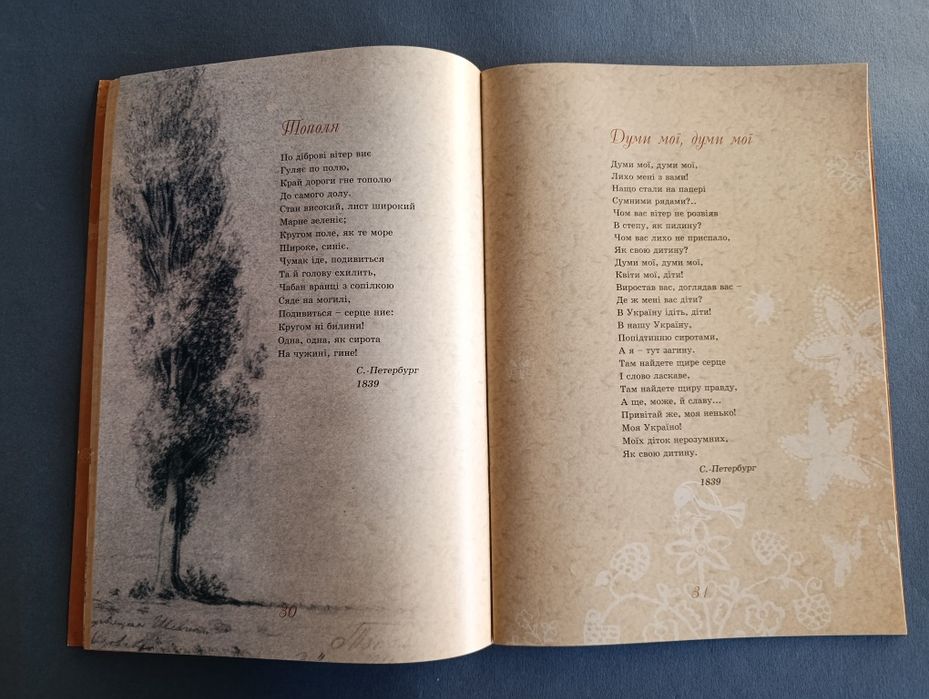 Тополя
По діброві вітер виє
Гуляє по полю,
Край дороги гне тополю
До самого долу.
Стан високий, лист широкий
Марне зеленіє;
Кругом поле, як те море
Широке, синіє.
Чумак іде, подивиться
Та й голову схилить,
Чабан вранці з сопілкою
Сяде на могилі,
Подивиться – серце ниє:
Кругом ні билини!
Одна, одна, як сирота
На чужині, гине!
С.-Петербург
1839
30
Думи мої, думи мої
Думи мої, думи мої,
Лихо мені з вами!
Нащо стали на папері
Сумними рядами?..
Чом вас вітер не розвіяв
В степу, як пилину?
Чом вас лихо не приспало,
Як свою дитину?
Думи мої, думи мої,
Квіти мої, діти!
Виростав вас, доглядав вас –
Де ж мені вас діти?
В Україну ідіть, діти!
В нашу Україну,
Попідтинню сиротами,
А я – тут загину.
Там найдете щире серце
І слово ласкаве,
Там найдете щиру правду,
А ще, може, й славу...
Привітай же, моя ненько!
Моя Україно!
Моїх діток нерозумних,
Як свою дитину.
С.-Петербург
1839
31